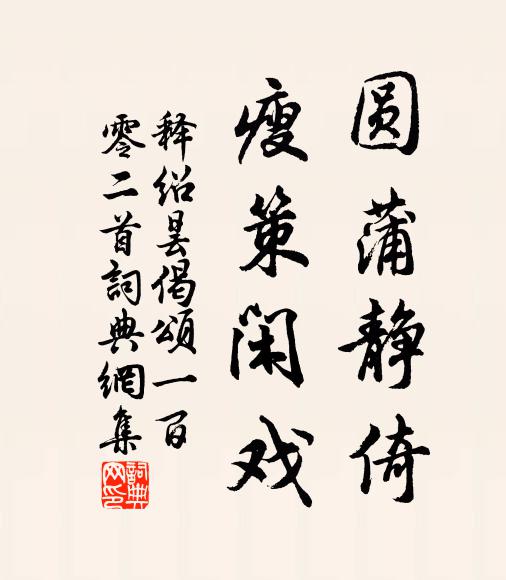 圆蒲静倚
瘦策闲戏
释绍昙偈颂一百
零二首詞典網集
詞典網印